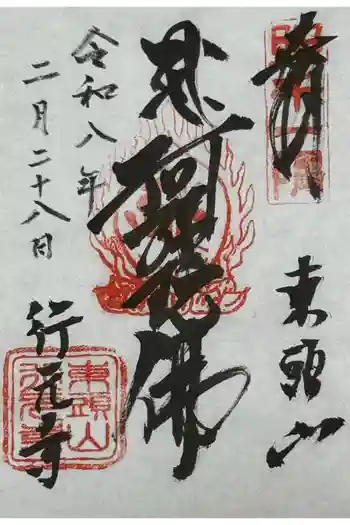 奉拝
東頭山
阿弥陀佛
令和八年
二月二十八日
行元寺
東頭山
行元寺